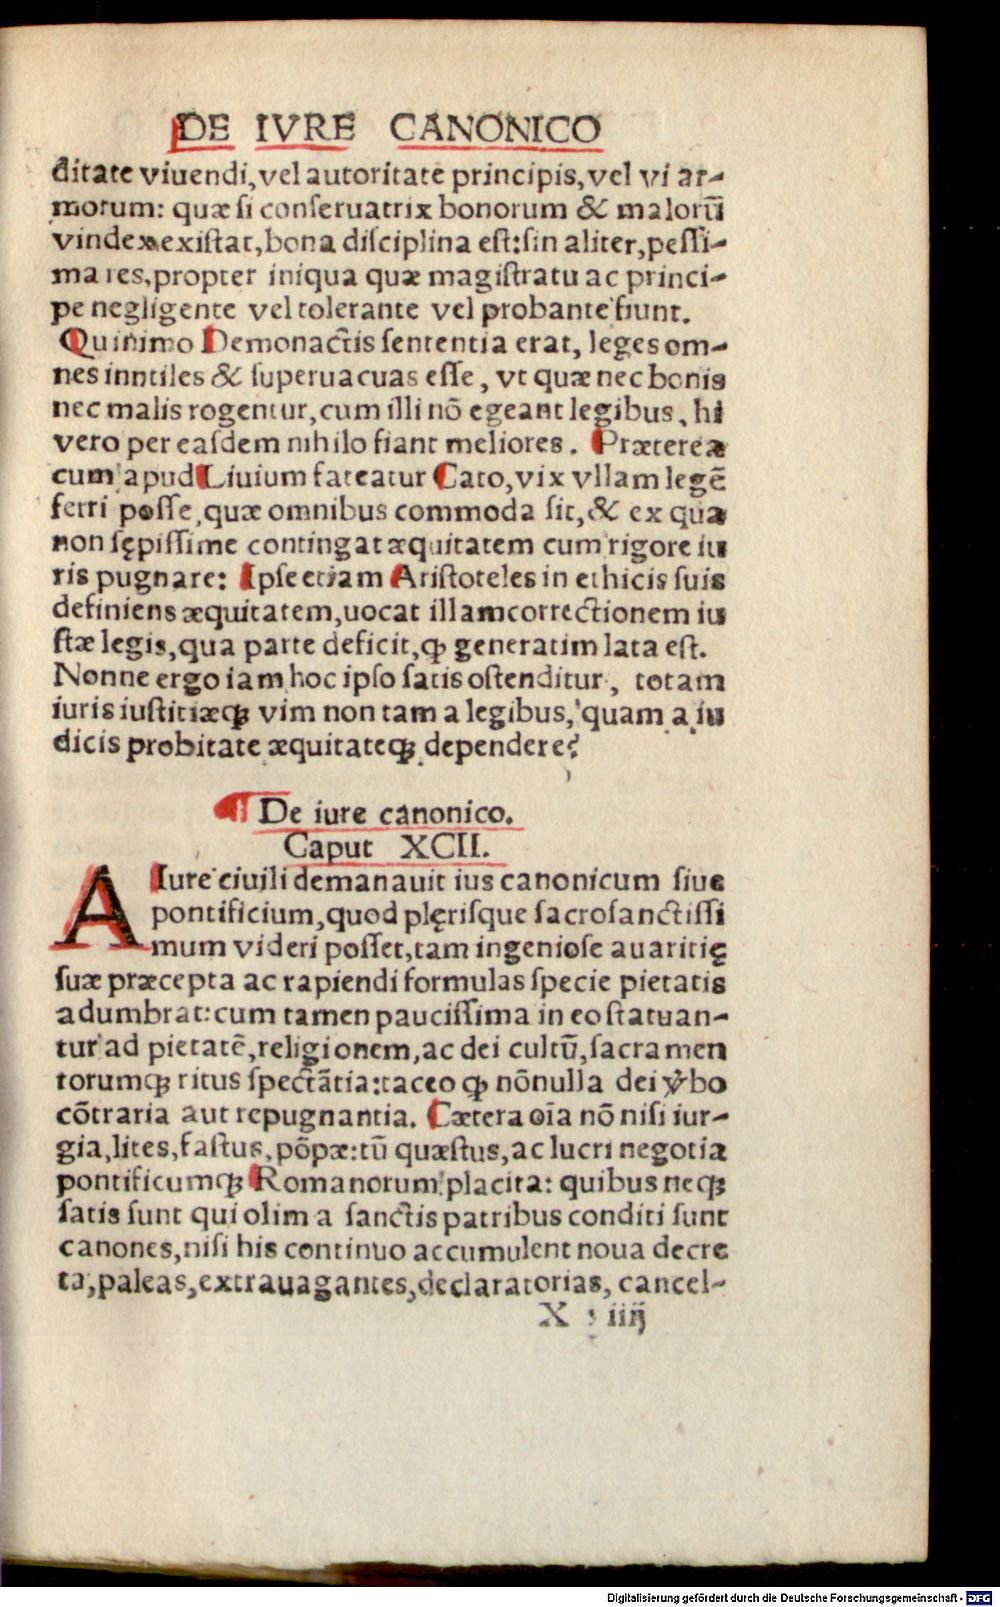 DE IVRE CANONICO
ditate viuendi, vel autoritate principis, vel vi ar-
morum: quæ si conseruatrix bonorum & malorū
vindex existat, bona disciplina est: sin aliter, pessi-
ma res, propter iniqua quæ magistratu ac princi-
pe negligente vel tolerante vel probante fiunt.
Quinimo Demonactis sententia erat, leges om-
nes inntiles & superuacuas esse, vt quæ nec bonis
nec malis rogentur, cum illi nō egeant legibus, hi
vero per easdem nihilo fiant meliores. Præterea
cum apud Liuium fateatur Cato, vix vllam legē
ferri posse, quæ omnibus commoda sit, & ex qua
non sępissime contingat æquitatem cum rigore iu
ris pugnare: Ipse etiam Aristoteles in ethicis suis
definiens æquitatem, uocat illam correctionem iu
stæ legis, qua parte deficit, ꝙ generatim lata est.
Nonne ergo iam hoc ipso satis ostenditur, totam
iuris iustitiæqꝫ vim non tam a legibus, quam a iu
dicis probitate æquitateqꝫ dependere?
De iure canonico.
Caput XCII.
A Iure ciuili demanauit ius canonicum siue
pontificium, quod plęrisque sacrosanctissi
mum videri posset, tam ingeniose auaritię
suæ præcepta ac rapiendi formulas specie pietatis
adumbrat: cum tamen paucissima in eo statuan-
tur ad pietatē, religionem, ac dei cultū, sacramen
torumqꝫ ritus spectātia: taceo ꝙ nōnulla dei v̄bo
cōtraria aut repugnantia. Cætera oīa nō nisi iur-
gia, lites, fastus, pōpæ: tū quæstus, ac lucri negotia
pontificumqꝫ Romanorum placita: quibus neqꝫ
satis sunt qui olim a sanctis patribus conditi sunt
canones, nisi his continuo accumulent noua decre
ta, paleas, extrauagantes, declaratorias, cancel-
X iiij
Digitalisierung gefördert durch die Deutsche Forschungsgemeinschaft - DFG